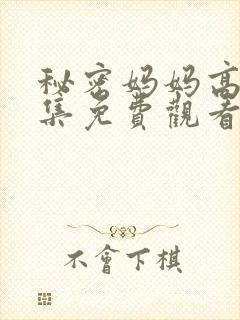 秘密妈妈高
集免費觀看
不會下棋